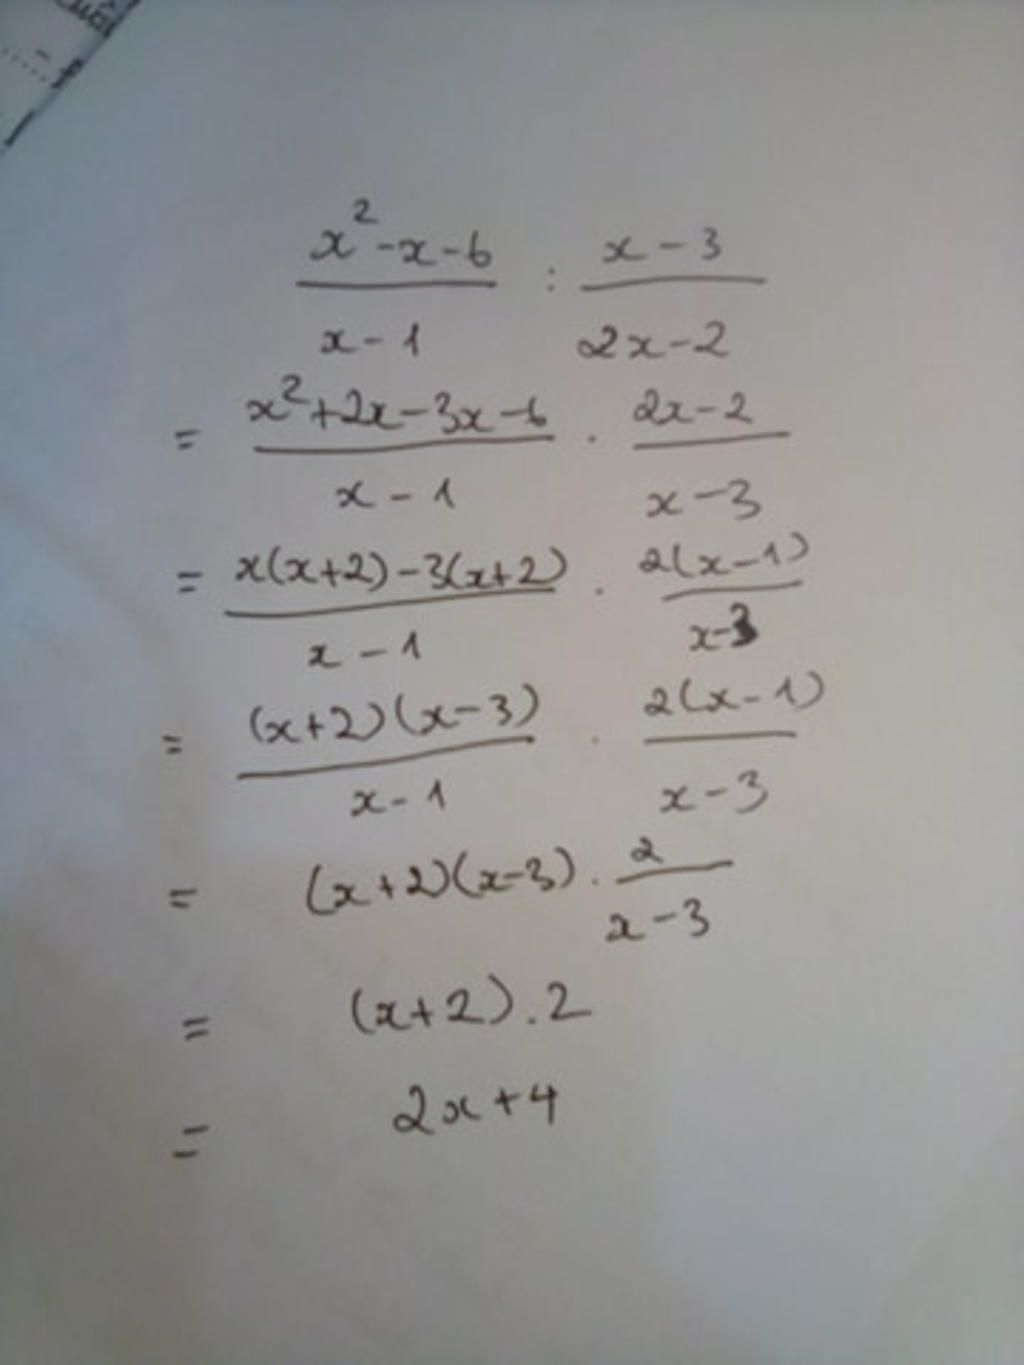 x² - x - 6 / x - 1 : x - 3 / 2x - 2
= x² + 2x - 3x - 6 / x - 1 . 2x - 2 / x - 3
= x(x+2) - 3(x+2) / x - 1 . 2(x-1) / x-3
= (x+2)(x-3) / x - 1 . 2(x-1) / x - 3
= (x+2)(x-3) . 2 / x - 3
= (x+2) . 2
= 2x + 4